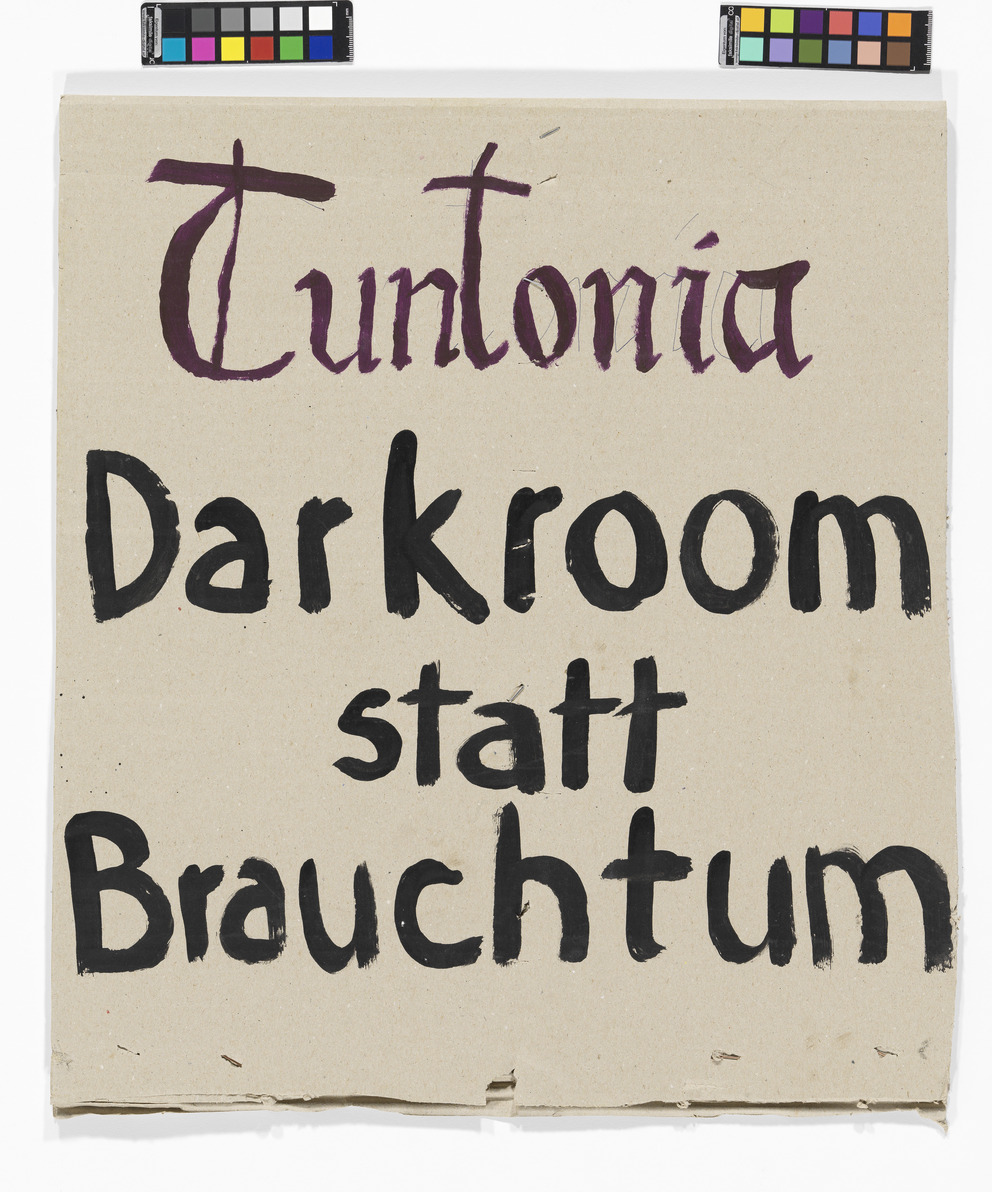 Tuntonia
Darkroom
statt
Brauchtum